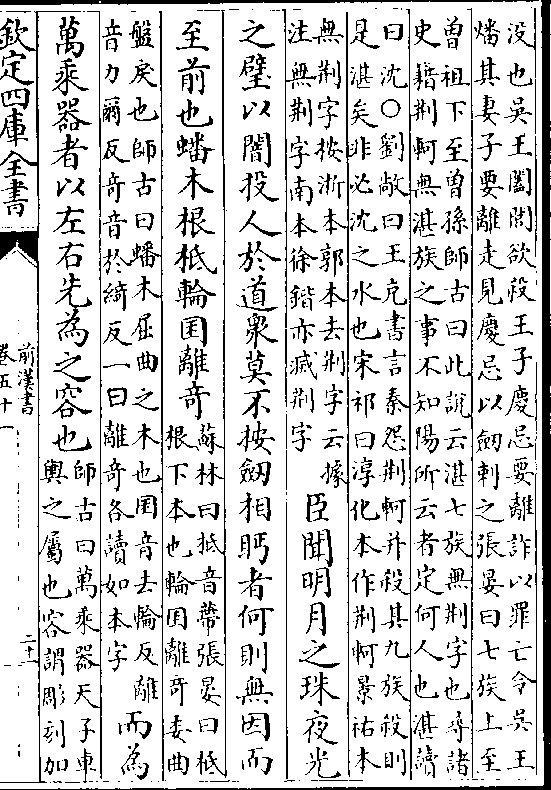 没也吳王闔閭欲殺王子慶忌要離詐以罪亡令吳王
燔其妻子要離走見慶忌以劔刺之張晏曰七族上至
曾祖下至曾孫師古曰此說云湛七族無荆字也尋諸
史籍荆軻無湛族之事不知陽所云者定何人也湛讀
曰沈○劉敞曰王充書言秦怨荆軻并殺其九族殺則
是湛矣非必沈之水也宋祁曰淳化本作荆軻景祐本
無荆字按浙本郭本去荆字云據
注無荆字南本徐鍇亦滅荆字
臣聞明月之珠夜光
之璧以闇投人於道衆莫不按劔相眄者何則無因而
至前也蟠木根柢輪囷離奇
蘇林曰柢音蔕張晏曰柢
根下本也輪囷離奇委曲
盤戾也師古曰蟠木屈曲之木也囷音去輪反離
音力爾反奇音於綺反一曰離奇各讀如本字
而為
萬乘器者以左右先為之容也
師古曰萬乘器天子車
輿之屬也容謂雕刻加
欽定四庫全書
前漢書
卷五十一
二十一